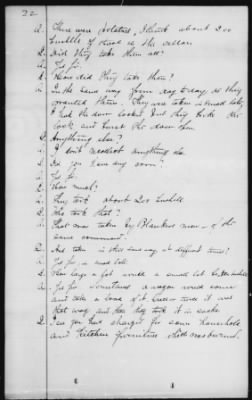 22
A. There were potatoes, I think about 200
bushels of those in the cellar.
Q. Did they take them all?
A. Yes Sir.
Q. How did they take them?
A. In the same way from day to day as they
wanted them. They were taken in small lots,
I had the door locked but they broke the
lock and burst the door open.
Q. Anything else?
A. I don't recollect anything else.
Q. Did you have any corn?
A. Yes Sir.
Q. How much?
A. They took about 200 bushels.
Q. Who took that?
A. That was taken by Blankers men - of the
same command.
Q. And taken in this same way, at different times?
A. Yes Sir, in small lots.
Q. How large a lot would a small lot be,
A. Yes Sir Sometimes a wagon would come
and take a load of it, it was
that way and they took it in sacks.
Q. I see you have charged for some household
and kitchen furniture